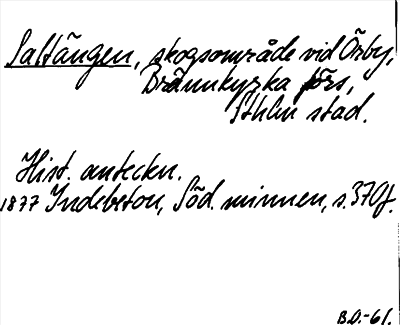 Saltängen, skogsområde vid Örby,
Brännkyrka förs,
Sthlm stad.
Hist. anteckn.
1877 Indebetou, Söd. minnen, s. 370f.
B.D.-61.